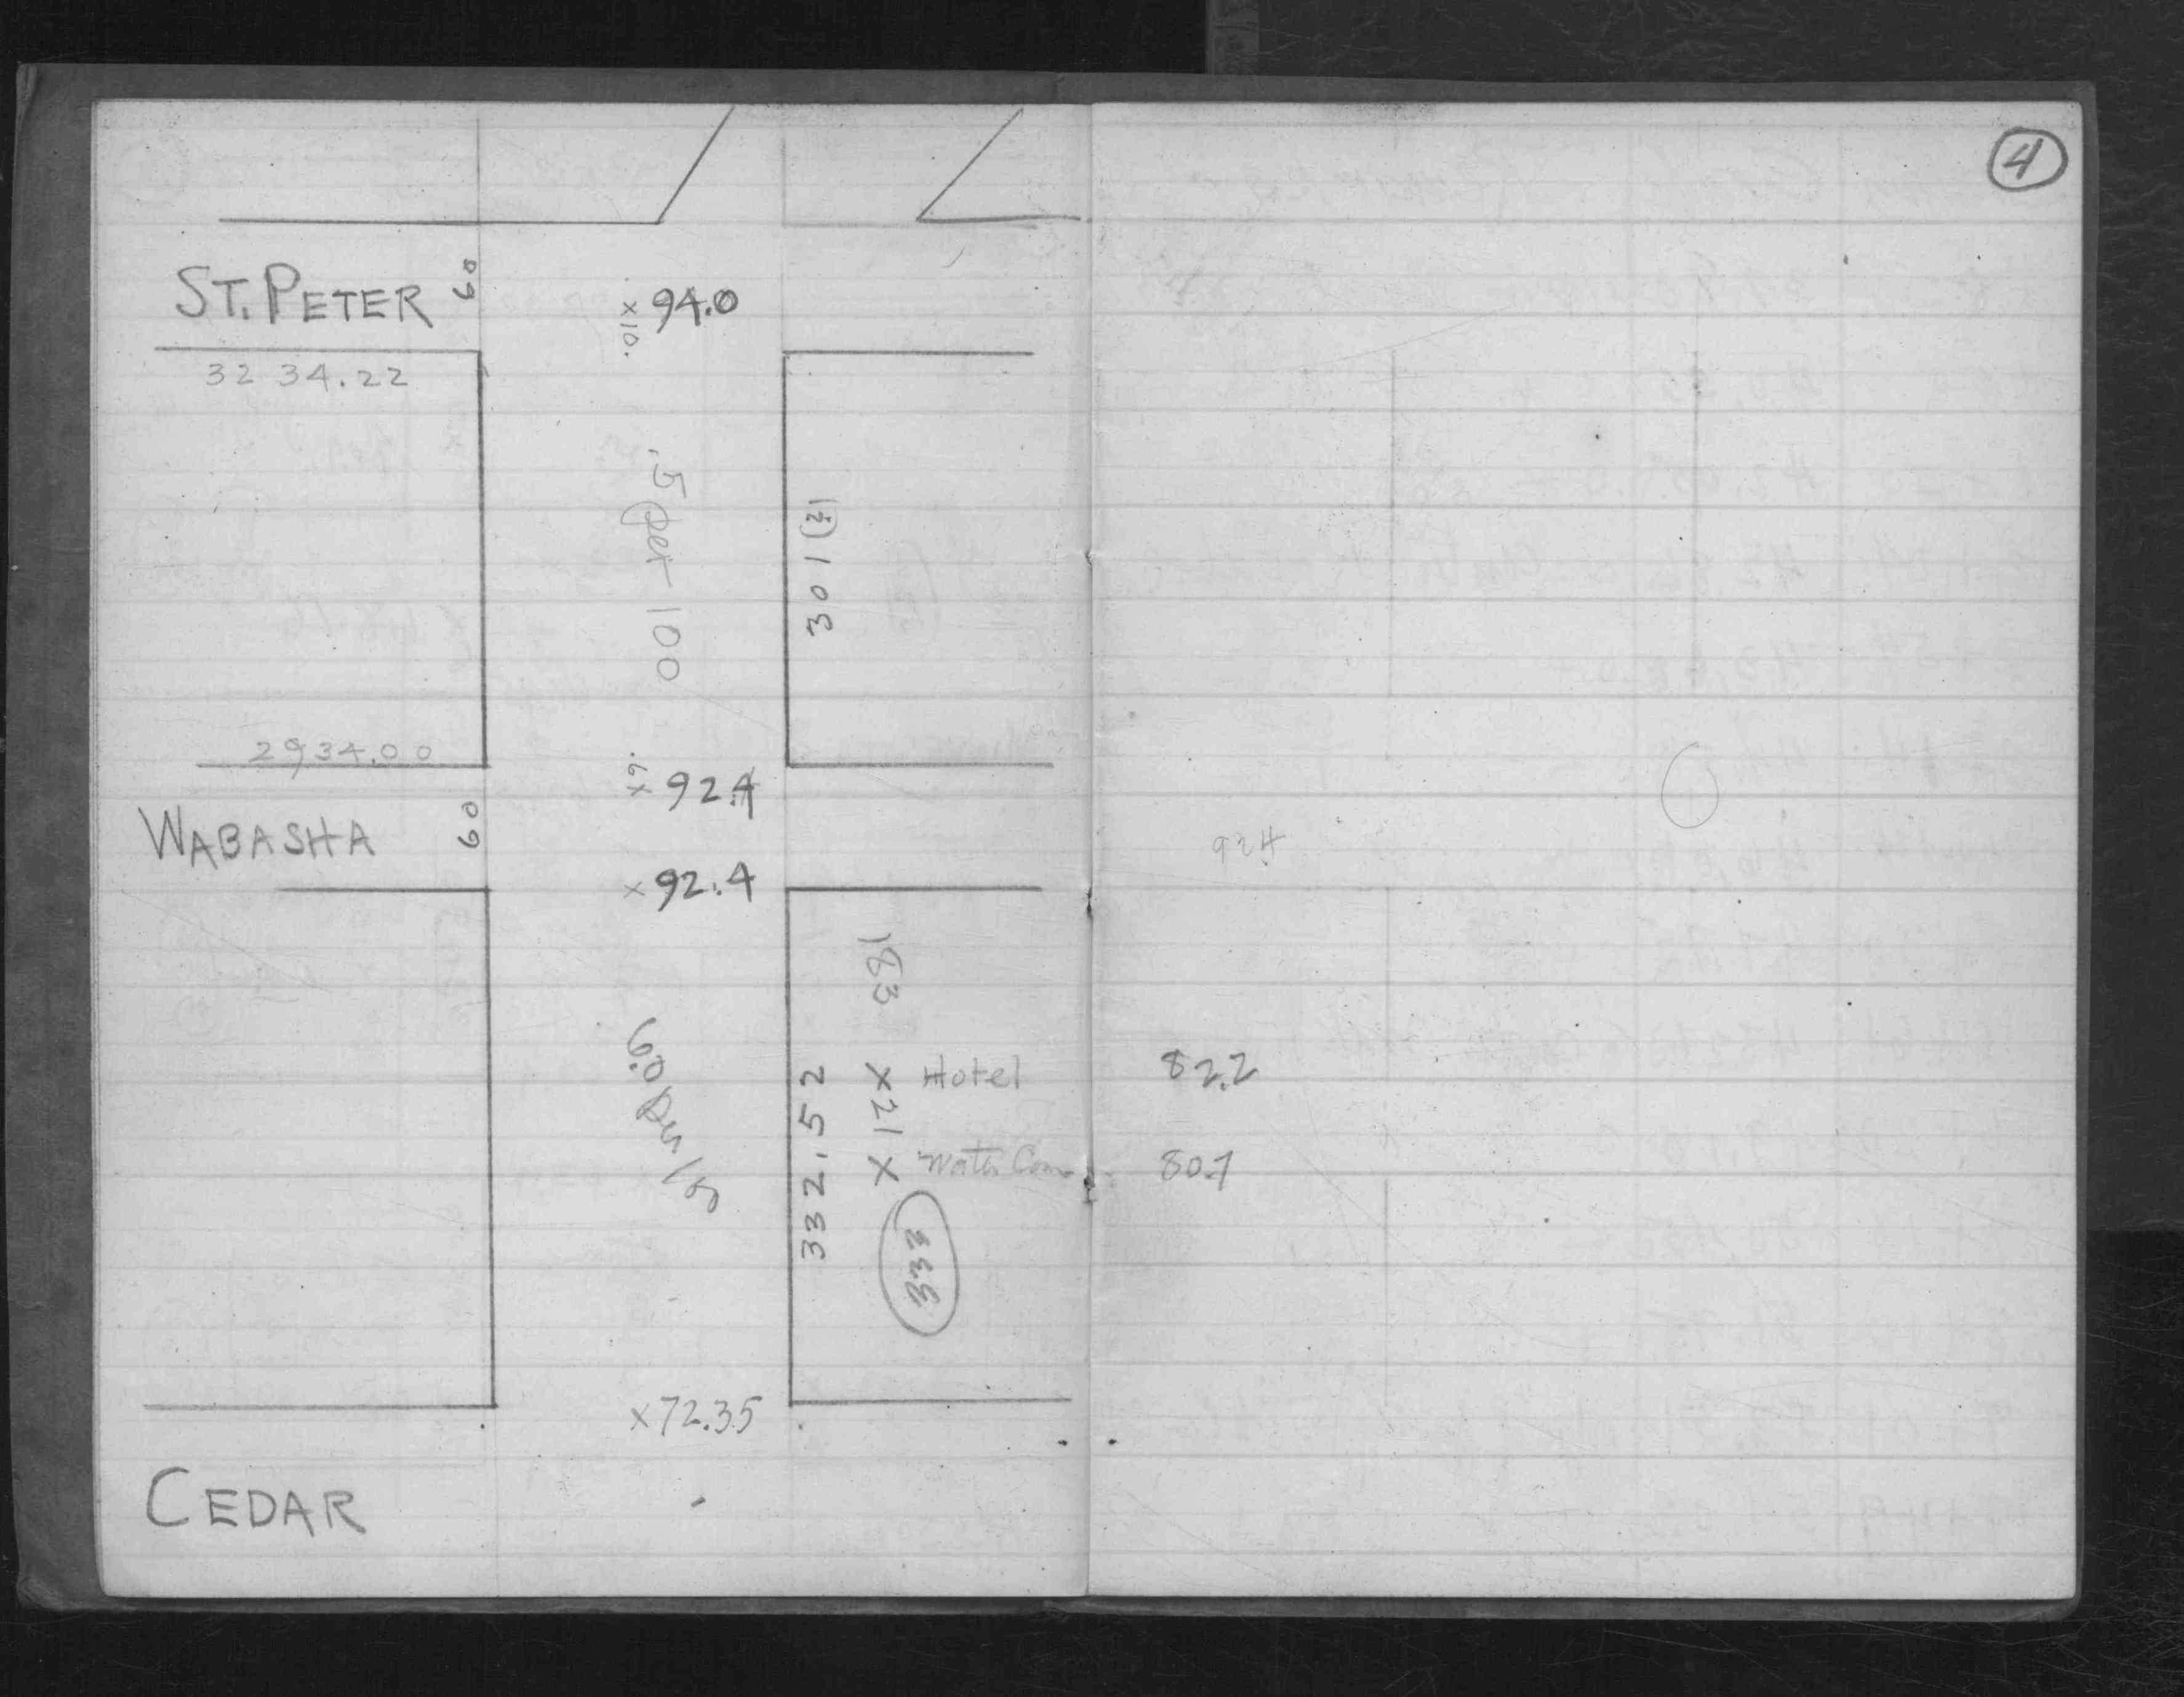 4
ST. PETER 60
x 94.0
x10.
32 34.22
.5 per 100
301 (½)
2934.00
.9x
x 92.4
WABASHA 60
924
x 92.4
183
6.0 per
332.52
x 21 x
Hotel 82.2
Water Com 80.7
x 72.35
CEDAR